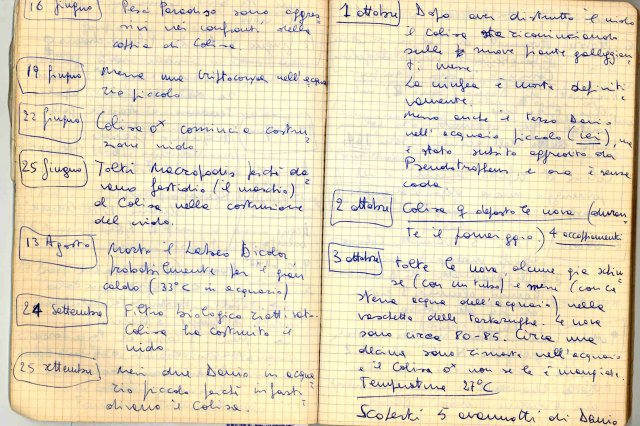 16 Giugno
Pesci Paradiso sono aggres=
sivi nei confronti della
coppia di Colisa.
19 Giugno
Messa una Criptocoryne nell'acqua
rio piccolo
22 Giugno
Colisa ♂ comincia costru=
zione nido.
25 Giugno
Tolti Macropodis perché da=
vano fastidio (il maschio)
al Colisa nella costruzione
del nido.
13 Agosto
Morto il Labeo Bicolor
probabilmente per il gran
caldo (33°C in acquario)
24 Settembre
Filtro biologico riatti
Colisa ha costruito il
nido
25 settembre
messi due Danio in acqua
rio piccolo perché infasti=
divano il Colisa.
1 ottobre
Dopo aver distrutto il nido
il Colisa sta ricominciando
sulle nuove piante galleggian
ti messe.
La ninfea è morta definiti
vamente.
Messo anche il terzo Danio
nell'acquario piccolo (ieri), ma
è stato subito aggredito da
Pseudotropheus e ora è senza
coda
2 ottobre
Colisa ♀ deposto le uova (duran
te il pomeriggio) 4 accoppiamenti
3 ottobre
Tolte le uova, alcune già schiu
se (con un tubo) e messe (con la
stessa acqua dell'acquario) nella
vaschetta delle tartarughe. Le uova
sono circa 80-85. Circa una
decina sono rimaste nell'acquario
e il Colisa ♂ non se le è mangiate.
Temperatura 27°C
Scoperti 5 avannotti di Danio